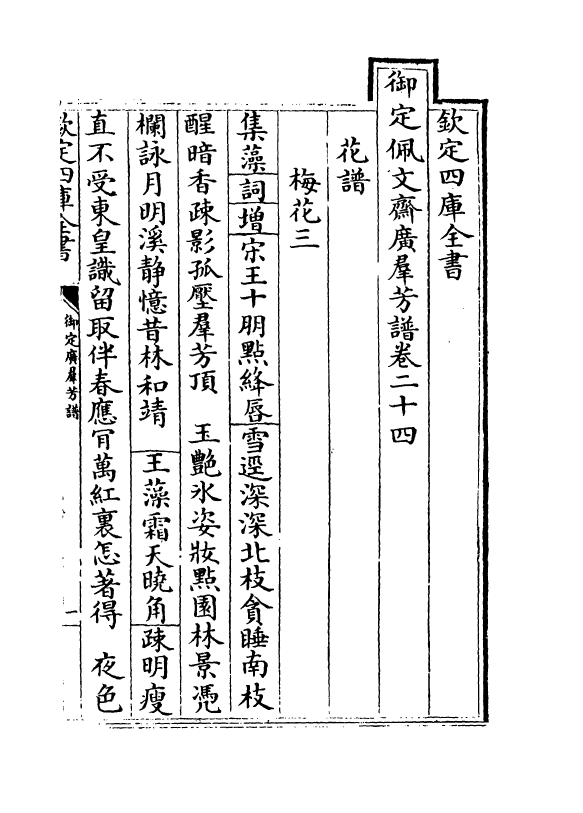 欽定四庫全書
御定佩文齋廣羣芳譜卷二十四
花譜
梅花三
集藻詞增宋王十朋點絳唇雪逕深深北枝貪睡南枝
醒暗香疎影孤壓羣芳頂　玉艷氷姿妝點園林景凴
欄詠月明溪靜憶昔林和靖　王藻霜天曉角疎明瘦
直不受東皇識留取伴春應肎萬紅裏怎著得　夜色
欽定四庫全書
御定廣羣芳譜
一